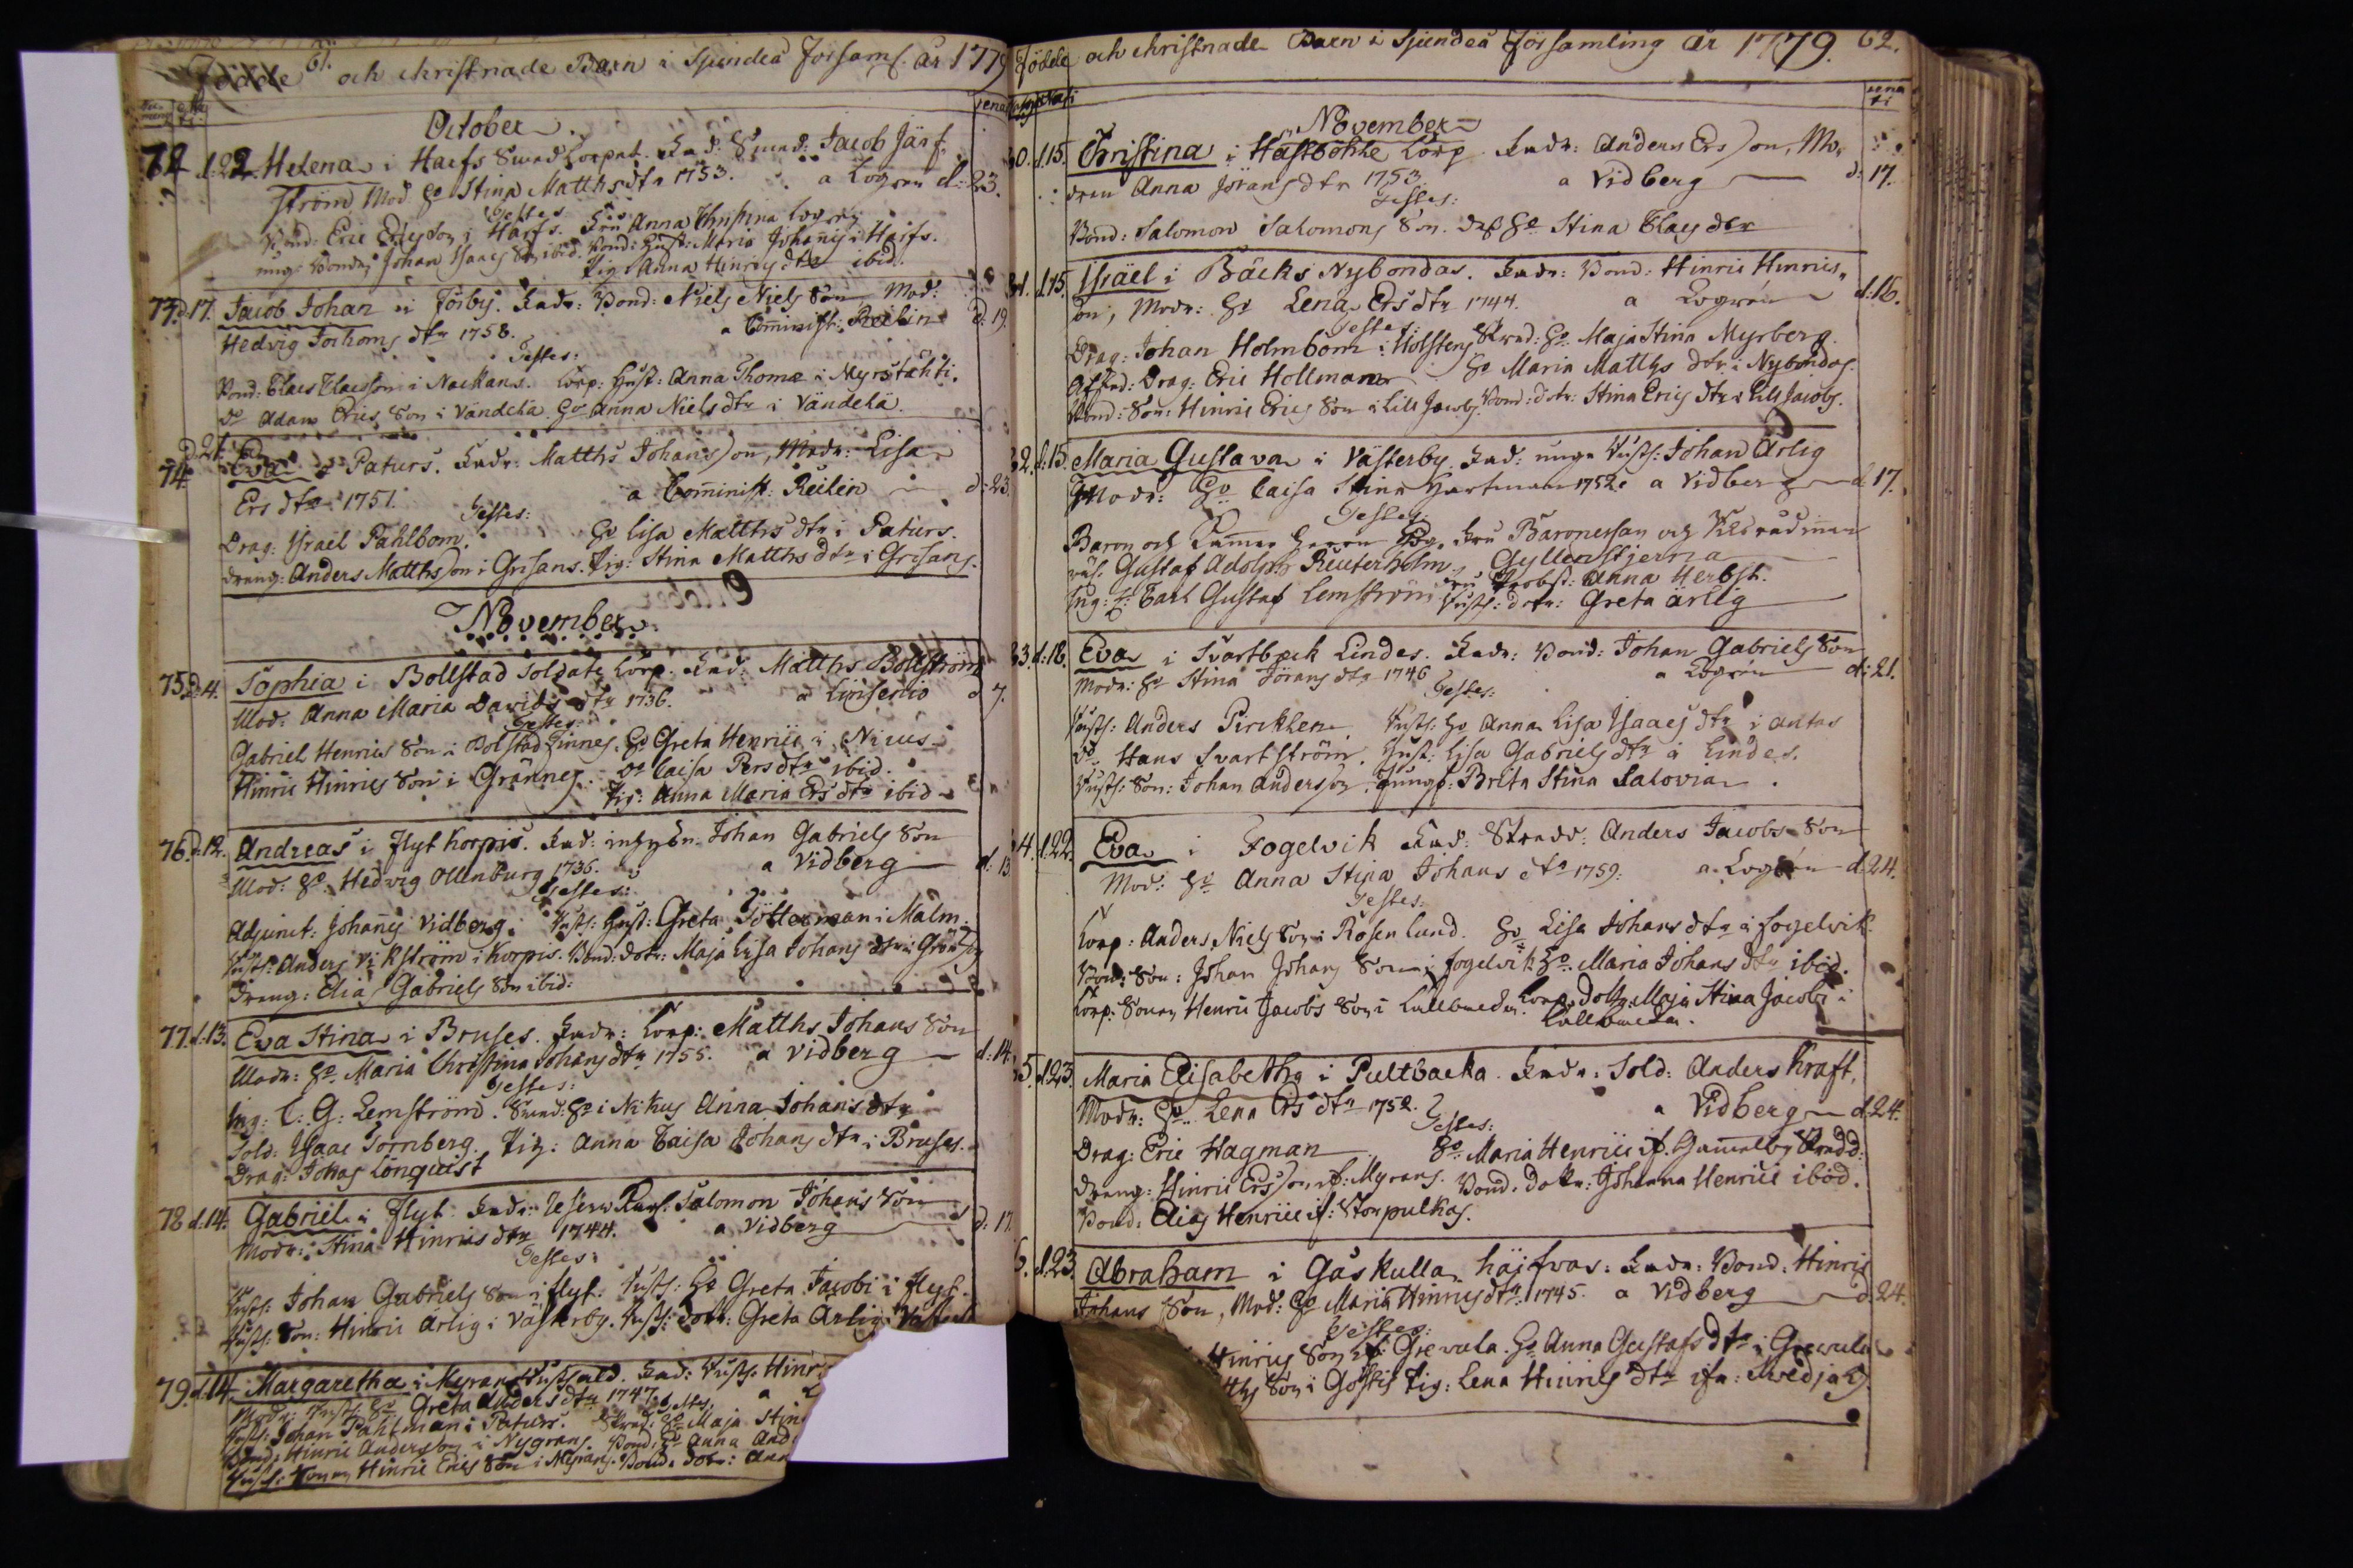 61.
Födde och christnade Barn i Sjundeå församl. år 1779
October
72 d:22. Helena i Harfs Smed torpet. Fad: Smed: Jacob Järf,
ström Mod. H:o Stina Matthsdtr 1753. a Logren d:23.
Testes
Bond: Eric Ericsson i Harfs. Fru Anna Christina Logren
Johan Isaacs Son ibid. Bond: Hust: Maria Johans i Harfs.
Pig: Anna Hinrics dtr ibid.
73. d 17. Jacob Johan i Förby. Fadr: Bond: Niels Niels Son, Mod:
Hedvig Jochoms dtr 1758. a Comminist: Reilin d:19.
Testes:
Bond: Claes Claesson i Nackans. Torp: Hust: Anna Thomæ i Myrstähti.
D:o Adam Erics Son i Vändelä. H:o Anna Niels dtr i Vändelä.
74 d 21. Eva i Paturs. Fadr: Matths Johansson, Modr: Lisa
Ers dtr 1751. a Comminist: Reilin d:23.
Testes:
Drag: Israel Pahlbom. H:o Lisa Matthsdtr i Paturs.
dräng: Anders Matthsson i Grisans. Pig: Stina Matthsdtr i Grisans.
November
75. d:4. Sophia i Bollstad Soldate torp. Fad: Matths Bollström
Mod: Anna Maria Davids dtr 1736. a d 7.
Testes:
Gabriel Henrics Son i Bolstad Finnes. H:o Greta Henrici i Nicus
Hinric Hinrics Son i Grännes. D:o Caisa Persdtr ibid.
Pig: Anna Maria Ersdtr ibid
76. d:12. Andreas i Flyt Korpis. Fad: inhysn Johan Gabriels Son
Mod: H:o Hedvig Ollenburg 1736. a Vidberg d:13.
Testes:
Adjunct: Johans Vidberg. Kusts: Hust: Greta Götterman i Malm.
Kusts: Anders Vikström i Korpis. Bond: dotr: Maja Lisa Johans dtr i
dräng: Elias Gabriels Son ibid:
77. d:13. Eva Stina i Bruses. Fadr: Torp: Matths Johans Son
Modr: H:o Maria Christina Johans dtr 1755. a Vidberg d:14.
Testes:
Ing: C: G: Lemström. Smed: H:o i Nikus Anna Johansdtr
Sold: Isaac Törnberg. Pig: Anna Caisa Johans dtr i Bruses.
Drag: Jonas Lönquist
78 d.14. Gabriel i Flyt. Fadr: Salomon Johans Son
Modr: Stina Hinricsdtr 1744. a Vidberg d:17.
Testes:
Kusts: Johan Gabriels Son i flyt. Kusts: H:o Greta Jacobi i flyt.
Kusts: Son: Hinric Ärlig i Västerby. Kusts: dotr: Greta Ärlig i
79. d.14. Margaretha i Myrans Fad: Kusts: Hinr
Modr: H:o Greta Anders dtr 1747. Testes. a
Kusts: Johan Pahlman i Paturs. Skred: H:o Maja Stin
Bond: Hinric Andersson i Nygrans. Bond: H:o Anna And
Hinric Erics Son i Myrans. Bond: dotr: Ann
Födde och christnade Barn i Sjundeå Församling år 1779. 62.
November
30. d.15. Christina i Hästböhle torp. Fadr: Anders Ersson, Mo,
dren Anna Jörans dtr 1753 a Vidberg d: 17.
Testes:
Bond: Salomon Salomons Son. H:o Stina Claes dtr
31. d.15. Israël i Bäcks Nybondas. Fadr: Bond: Hinric Hinrics,
son, Modr: H:o Lena Ersdtr 1744. a Logrén d:16.
Testes:
Drag: Johan Holmbom i Holstens Skrad: H:o Maja Stina Myrberg.
Afsked: Drag: Eric Hollman H:o Maria Matths dtr i Nybondas.
Bond: Son: Hinric Erics Son i Lill Jacobs. Bond: dotr: Stina Erics dtr i Lill Jacobs.
32. d:15. Maria Gustava i Västerby. Fad: unge Kusts: Johan Ärlig
Modr: H:o Caisa Stina Hartman 1752. a Vidberg d 17.
Testes:
Baron och Herren Fru Baronessan och
Gustaf Adolph Reuterholm. Gyllenstjerna
Ing: Carl Gustaf Lemström. Fru Probst: Anna Herbst.
Kusts: dotr: Greta ärlig
33. d:18. Eva i Svartback Lindes. Fadr: Bond: Johan Gabriels Son
Modr: H:o Stina Jörans dtr 1746 a Logrén d:21.
Testes:
Kusts: Anders Pircklen. Kusts: H:o Anna Lisa Isaacs dtr i antas
D:o Hans Svartström. Hust: Lisa Gabriels dtr i Lindes.
Kusts: Son: Johan Andersson, Jungf: Brita Stina Salovia.
4. d.22. Eva i Fogelvik Fad: Skradd: Anders Jacobs Son
Mod: H:o Anna Stina Johans dtr 1759. a Logrén d.24.
Testes:
Torp: Anders Niels Son i Rosenlund. H:o Lisa Johansdtr i fogelvik.
Bond: Son: Johan Johans Son i fogelvik. H:o Maria Johans dtr ibid.
Torp: Sonen Henric Jacobs Son i Torp: Dottr: Maja Stina Jacobi i
5. d.23. Maria Elisabetha i Pultbacka. Fadr: Sold: Anders Kraft,
Modr: H:o Lena Ersdtr 1752. a Vidberg d.24.
Testes:
Drag: Eric Hagman H:o Maria Henrici if. Gammelby Skradd:
dräng: Hinric Ersson if: Myrans. Bond. dotr: Johanna Henrici ibid.
Bond: Elias Henrici if: Storpulkas.
6. d.23 Abraham i Gåskulla häifvar. Fadr: Bond: Hinric
Johans Son, Mod: H:o Maria Hinrics dtr 1745. a Vidberg d.24.
Testes:
Hinrics Son if: Grevula. H:o Anna Gustafs dtr i Grevula
Son i Göstis Pig: Lena Hinrics dtr ifr: Svedja